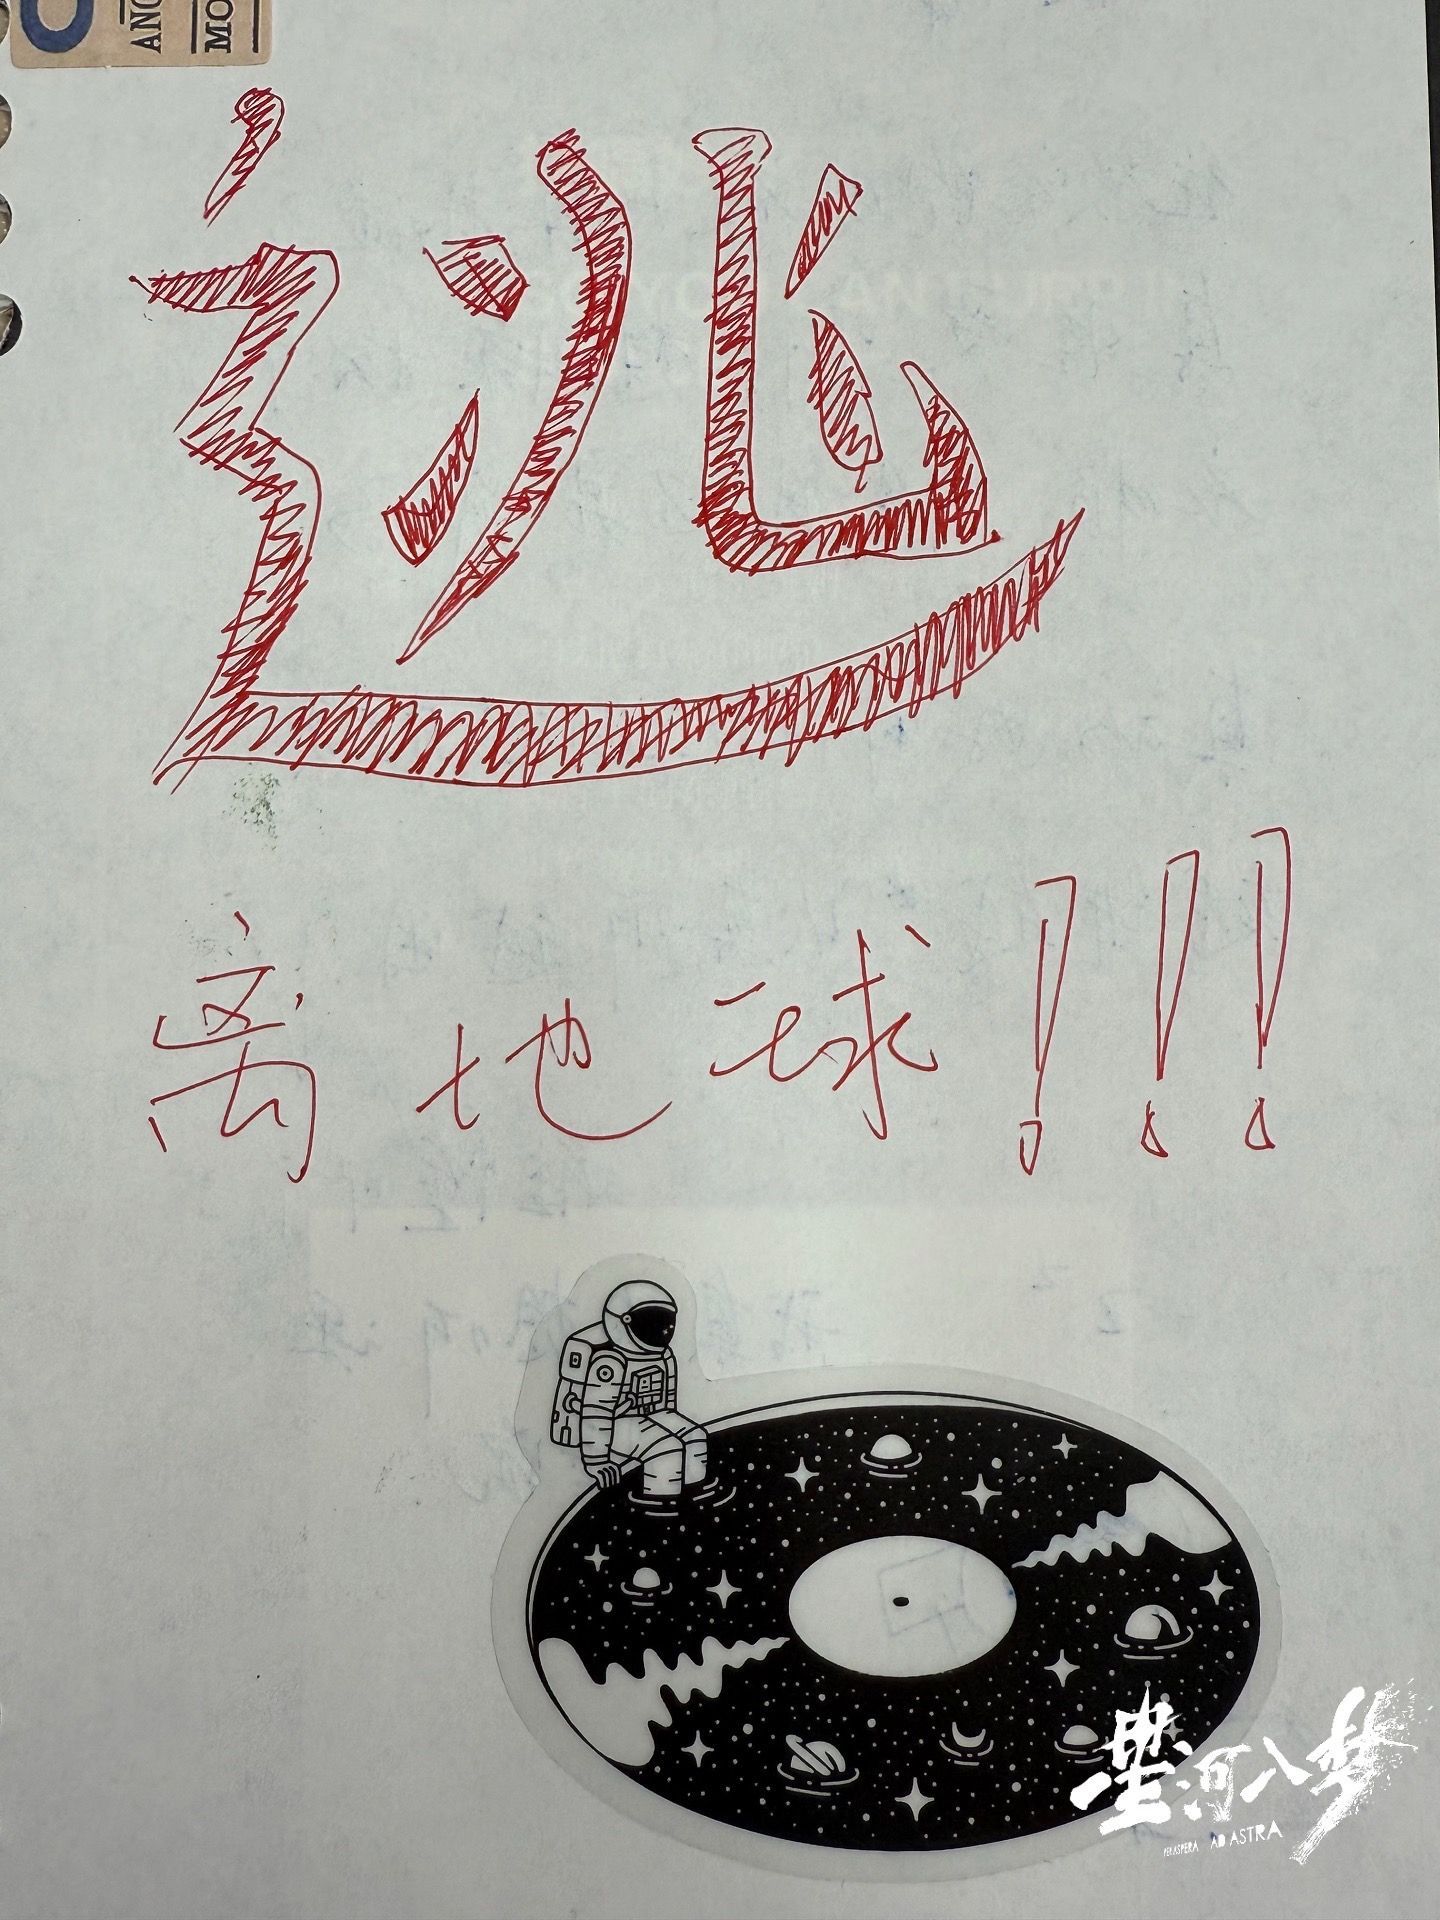 ANG
MO
逃
离地球!!!
星河入梦
PER ASPERA AD ASTRA